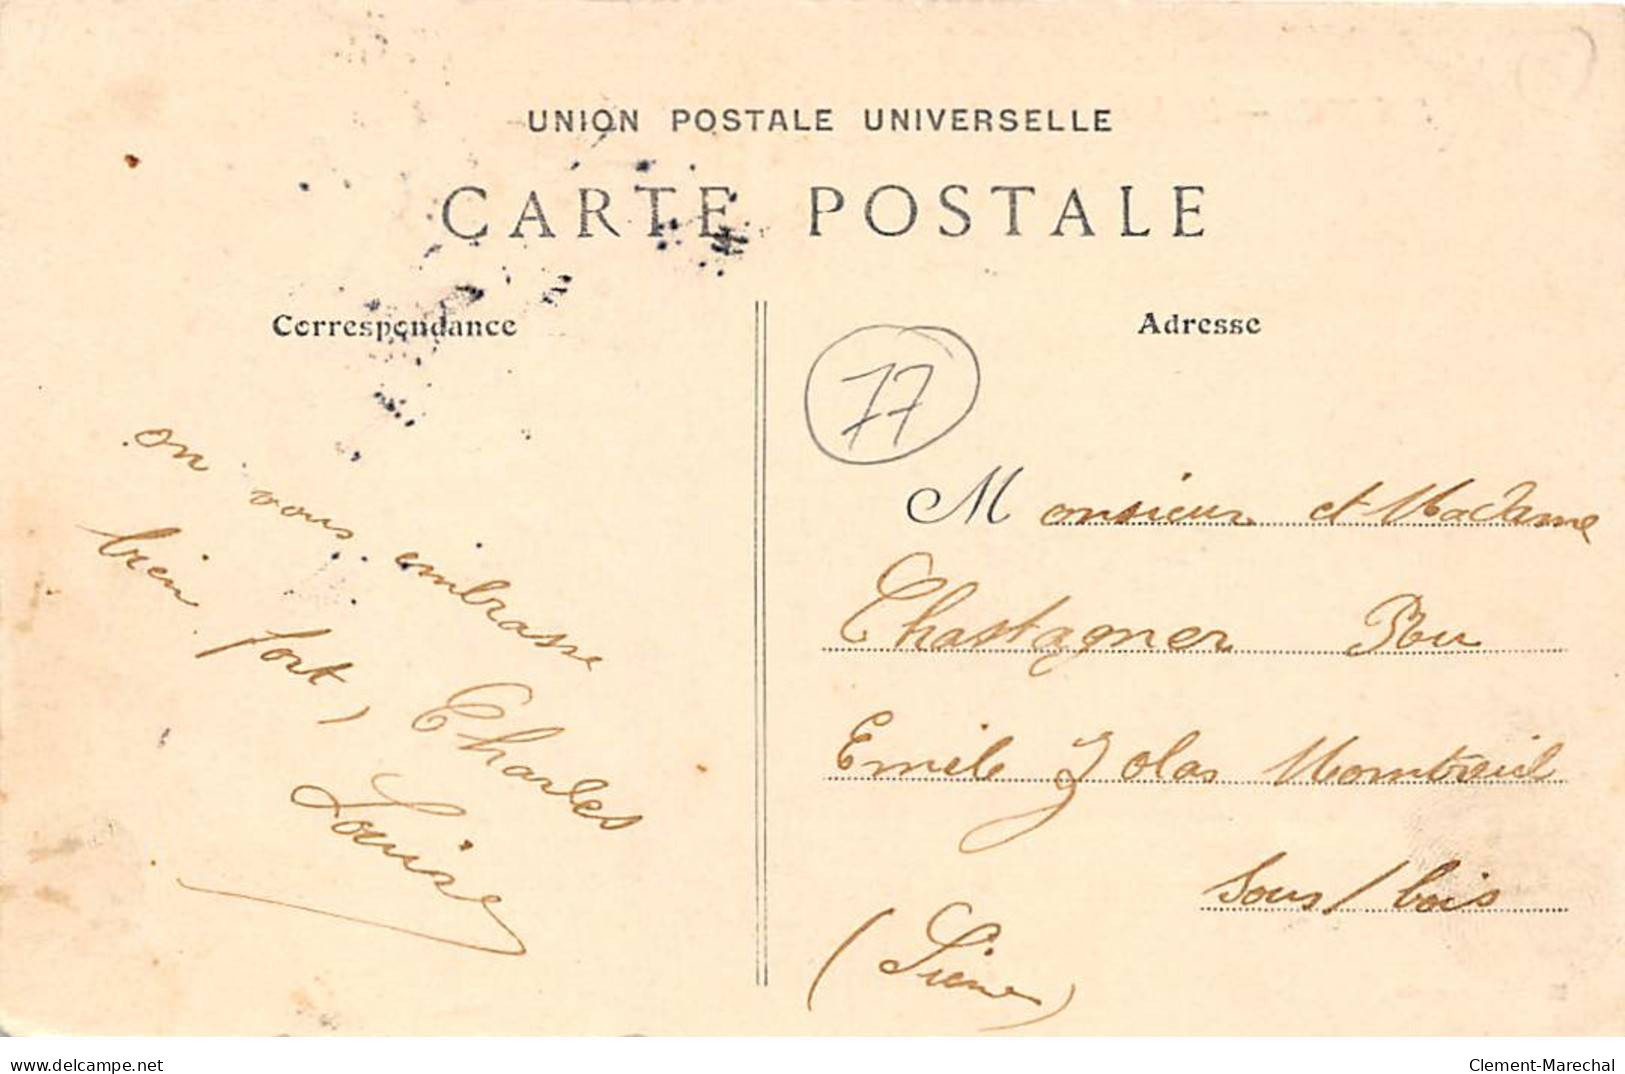 UNION POSTALE UNIVERSELLE
CARTE POSTALE
Correspondance
on vous embrasse
bien fort,
Charles
Louise
Adresse
77
Monsieur et Madame
Chastagner Ru
Emile Zolas Montreuil
sous/bois
(Siene)
delcampe.net
Clement-Marechal